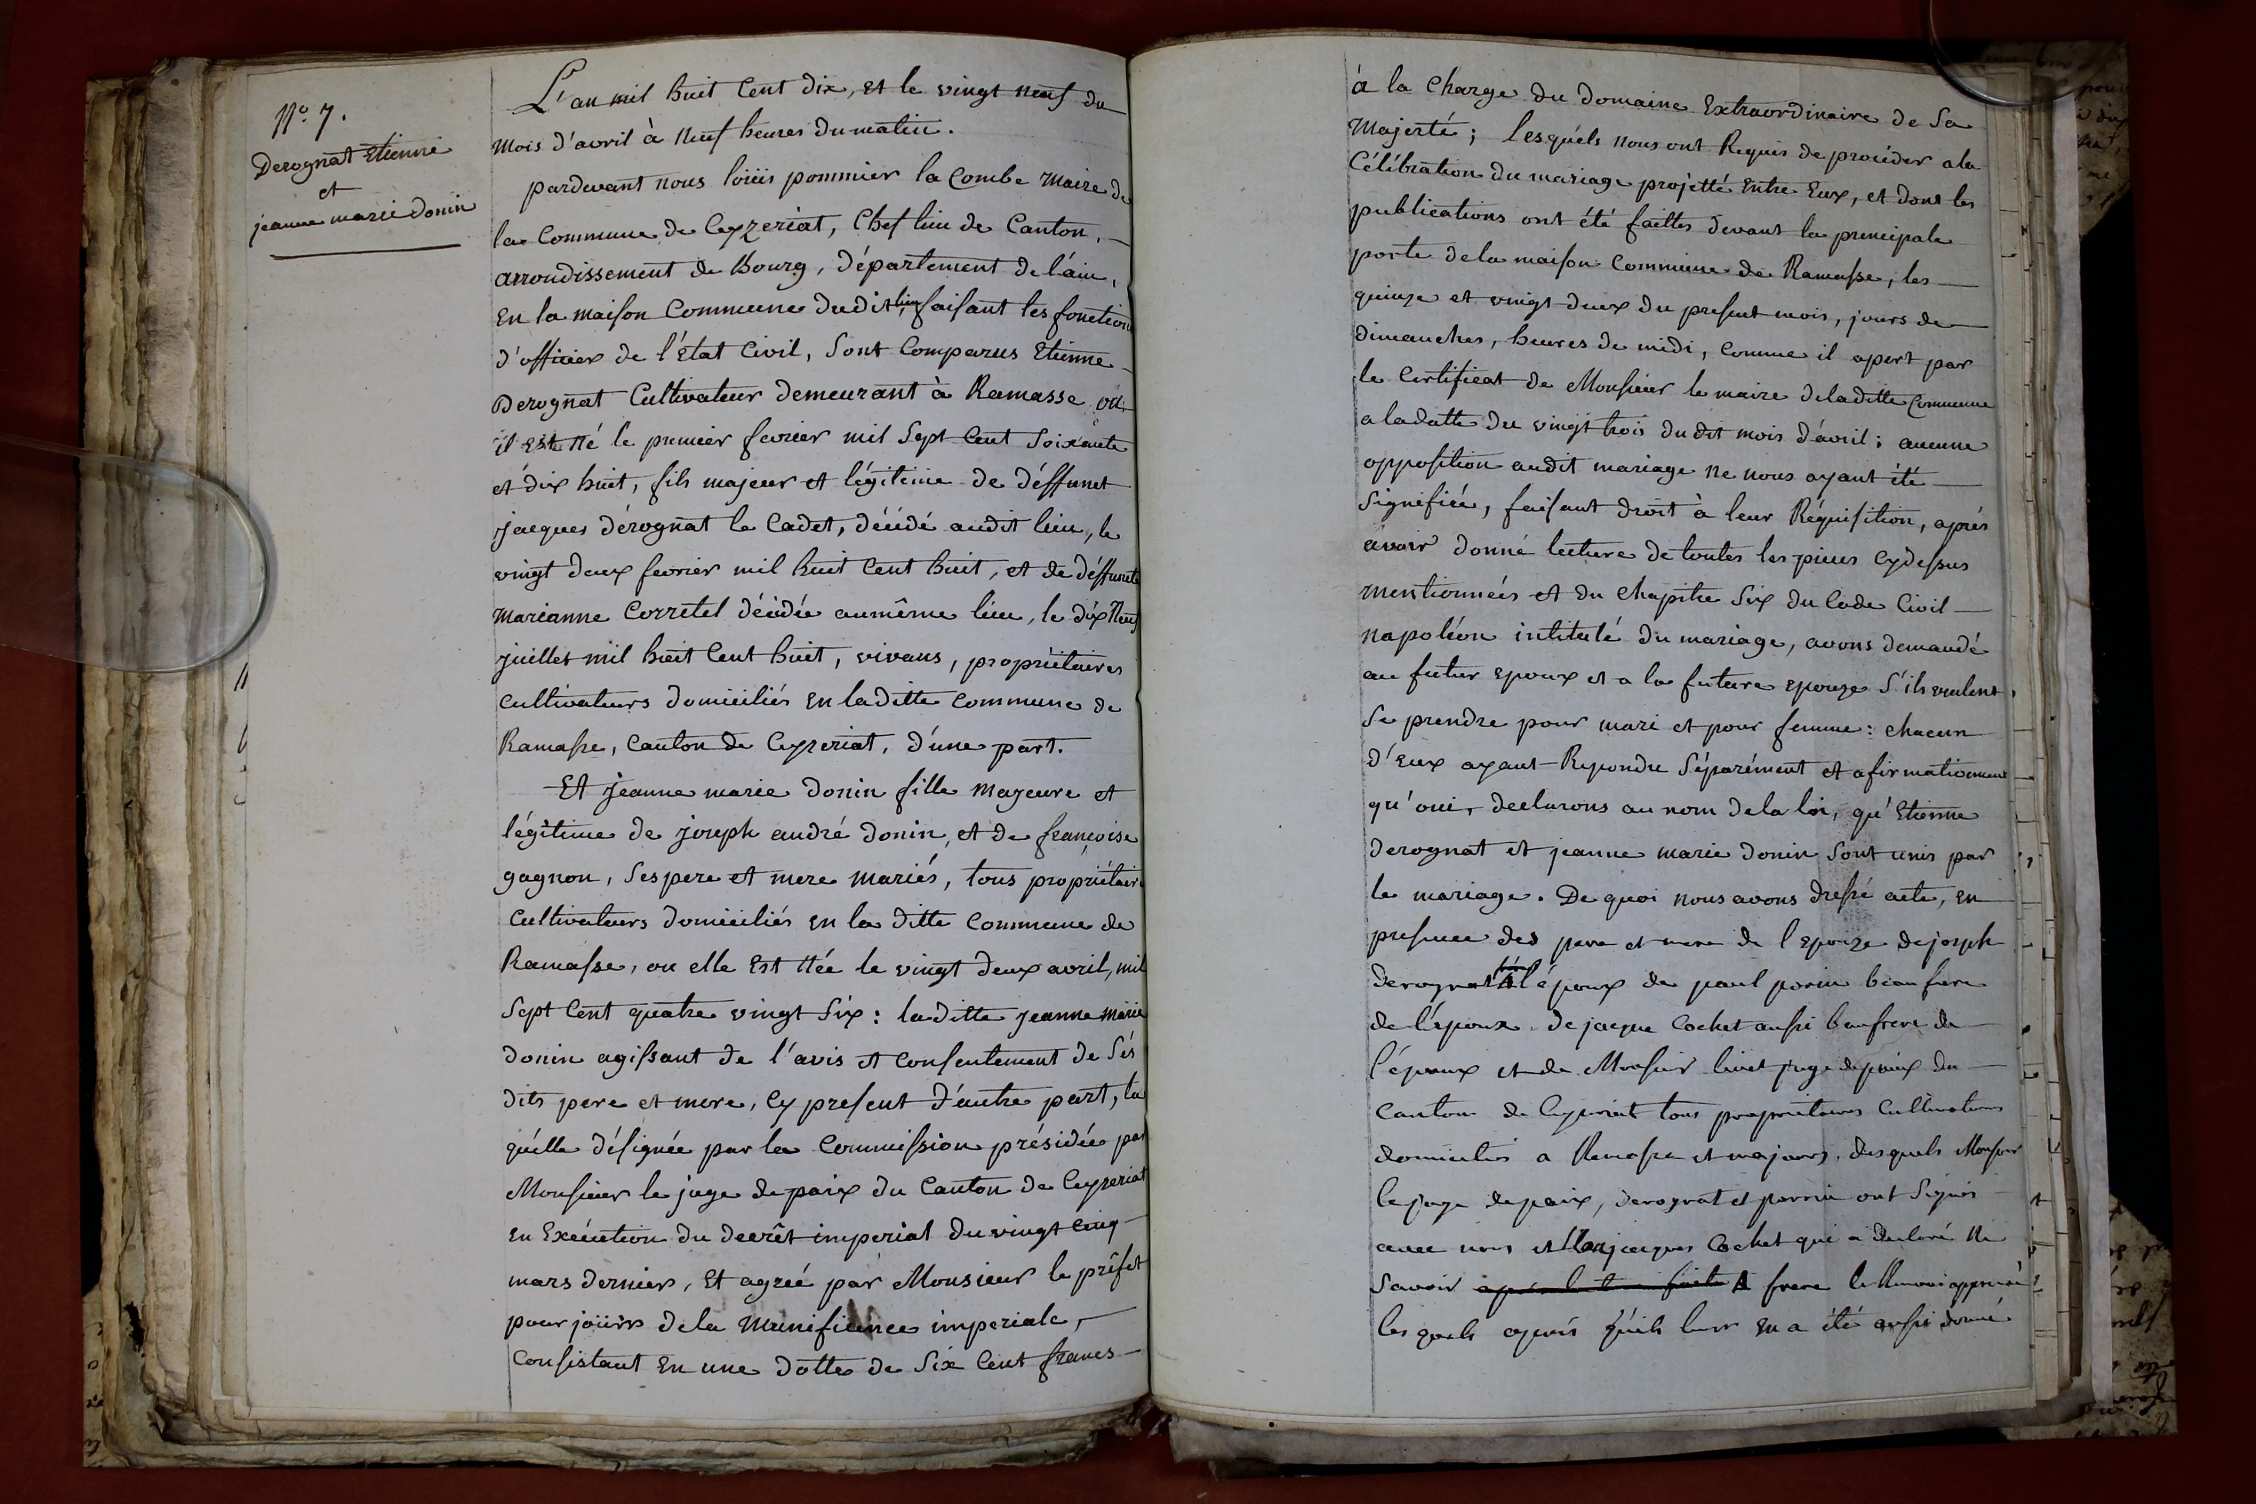 N.o 7.
Derognat Etienne
et
jeanne marie donin
L'an mil huit Cent dix, et le vingt neuf du
mois d'avril à neuf heures du matin.
pardevant nous loüis pommier la Combe maire de
la Commune de Ceyzeriat, Chef lieu de Canton,
arrondissement de Bourg, département de l'ain,
En la maison Commune dudit lieu, faisant les fonctions
d'officier de l'Etat Civil, Sont Comparus Etienne
Derognat Cultivateur demeurant à Ramasse où
il est né le premier fevrier mil Sept Cent Soixante
et dix huit, fils majeur et légitime de déffunct
jacques dérognat le Cadet, décidé audit lieu, le
vingt deux fevrier mil huit Cent huit, et de déffuncte
Marianne Corretel décidée aumême lieu, le dix Neuf
juillet mil huit Cent huit, vivans, propriétaires
cultivateurs domiciliés En laditte Commune de
Ramasse, Canton de Ceyzeriat, d'une part.
Et jeanne marie donin fille majeure et
légitime de joseph andré donin, et de françoise
gagnon, Ses pere et mere mariés, tous propriétaires
Cultivateurs domiciliés en la ditte Commune de
Ramasse, ou elle Est née le vingt deux avril, mil
Sept Cent quatre vingt Six : laditte jeanne marie
donin agissant de l'avis et Consentement de Sés
dits pere et mere, Cy present d'autre part, la
quelle désignée par la Commission présidée par
Monsieur le juge de paix du Canton de Ceyzeriat
en Exécution du decrêt imperial du vingt Cinq
mars dernier, Et agréé par Monsieur le préfet
pour joüirs dela Munificence imperiale,
Consistant En une dotte de Six Cent francs
à la Charge du Domaine Extraordinaire de Sa
Majesté ; Lesquéls nous ont Requis de procéder a la
Célébration du mariage projetté Entre Eux, et dont les
publications ont été faittes devant la principale
porte dela maison Commune de Ramasse, les
quinze et vingt deux du present mois, jours de
dimanches, heures de midi, Comme il apert par
le Certificat de Monsieur le maire deladitte Commune
a ladatte du vingt trois du dit mois d'avril ; aucune
opposition audit mariage ne nous ayant été
Signifiée, faisant droit à leur Réquisition, aprés
avoir donné lecture de toutes les pieces Cydessus
mentionneés et du Chapitre Six du Code Civil
napoléon intitulé du mariage, avons demandé
au futur epoux et a la future epouze S'ils veulent
Se prendre pour mari et pour femme : chacun
d'Eux ayant Repondu Séparément et afirmativement
qu'oui, declarons au nom dela loi, qu'Etienne
derognat et jeanne marie donin Sont unis par
le mariage. De quoi nous avons dressé acte, en
presence des pere et mere de l'epouze de joseph
derognat A l'époux de paul perrin beau frere
de l'époux de jacque Cochet aussi beaufrere de
l'époux et de Monsieur juge de paix du
Canton de Ceyzeriat tous proprietaires Cultivateurs
domiciliés a Ramasse et majeurs, desquels Monsieur
le juge de paix, derognat et perrin ont Signés
avec nous et non jacques Cochet qui a declaré ne
Savoir A frere le Renvoi approuvé
les quels aprés qu'ils leur en a été aussi donné